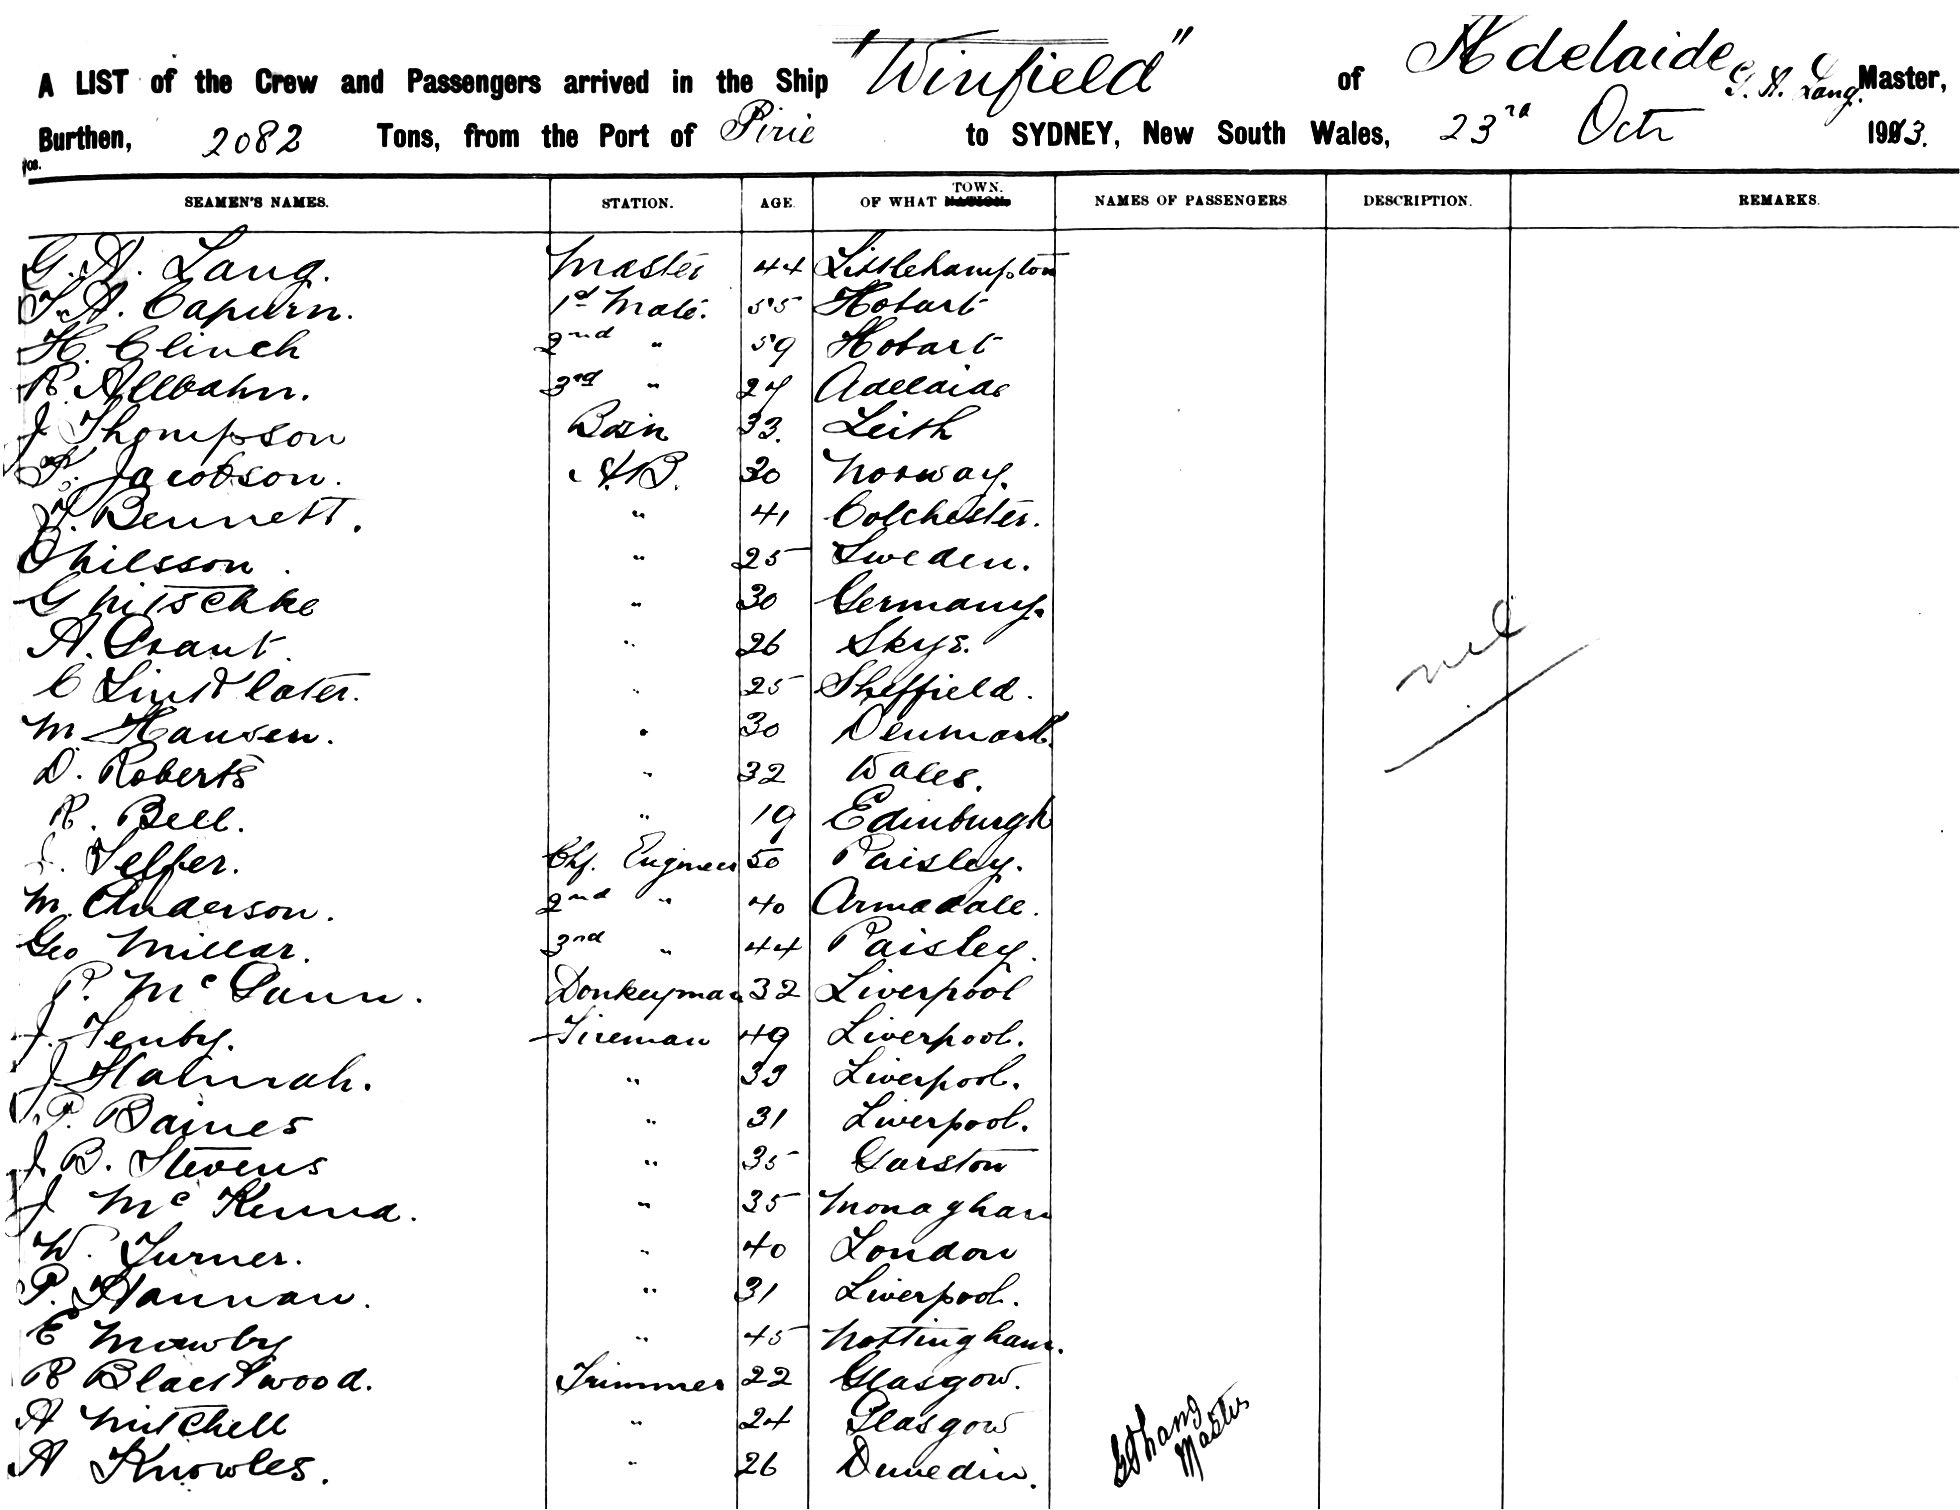 A LIST of the Crew and Passengers arrived in the Ship "Winfield" of Adelaide, G. A. Lang. Master,
Burthen, 2082 Tons, from the Port of Pirie to SYDNEY, New South Wales, 23rd Octr 1913.
SEAMEN'S NAMES. STATION. AGE. OF WHAT NATION. TOWN. NAMES OF PASSENGERS DESCRIPTION. REMARKS.
G. A. Lang. Master 44 Littlehampton
A. Capurn. 1st Mate. 55 Hobart
H. Clinch 2nd " 59 Hobart
R. Allbahn. 3rd " 27 Adelaide
J Thompson Bosn 33. Leith
Jacobson. A.B. 30 Norway.
J. Bennett. " 41 Colchester.
O Nilsson. " 25 Sweden.
G Nitschke " 30 Germany.
A. Grant. " 26 Skye.
C Linklater. " 25 Sheffield.
M Hansen. " 30 Denmark.
D. Roberts " 32 Wales.
R. Bell. " 19 Edinburgh
Telfer. Chf. Engineer 50 Paisley.
M. Anderson. 2nd " 40 Armadale.
Geo Millar. 3rd " 44 Paisley.
P. McGann. Donkeyman 32 Liverpool
J. Fenby. Fireman 49 Liverpool.
J Hannah. " 33 Liverpool.
P. Baines " 31 Liverpool.
J. B. Stevens " 35 Garston
J McKenna. " 35 Monaghan
W. Turner. " 40 London
P. Hannan. " 31 Liverpool.
E Mawby " 45 Nottingham.
R Blackwood. Trimmer 22 Glasgow.
A Mitchell " 24 Glasgow
A Knowles. " 26 Dunedin.
nil
G A Lang
Master